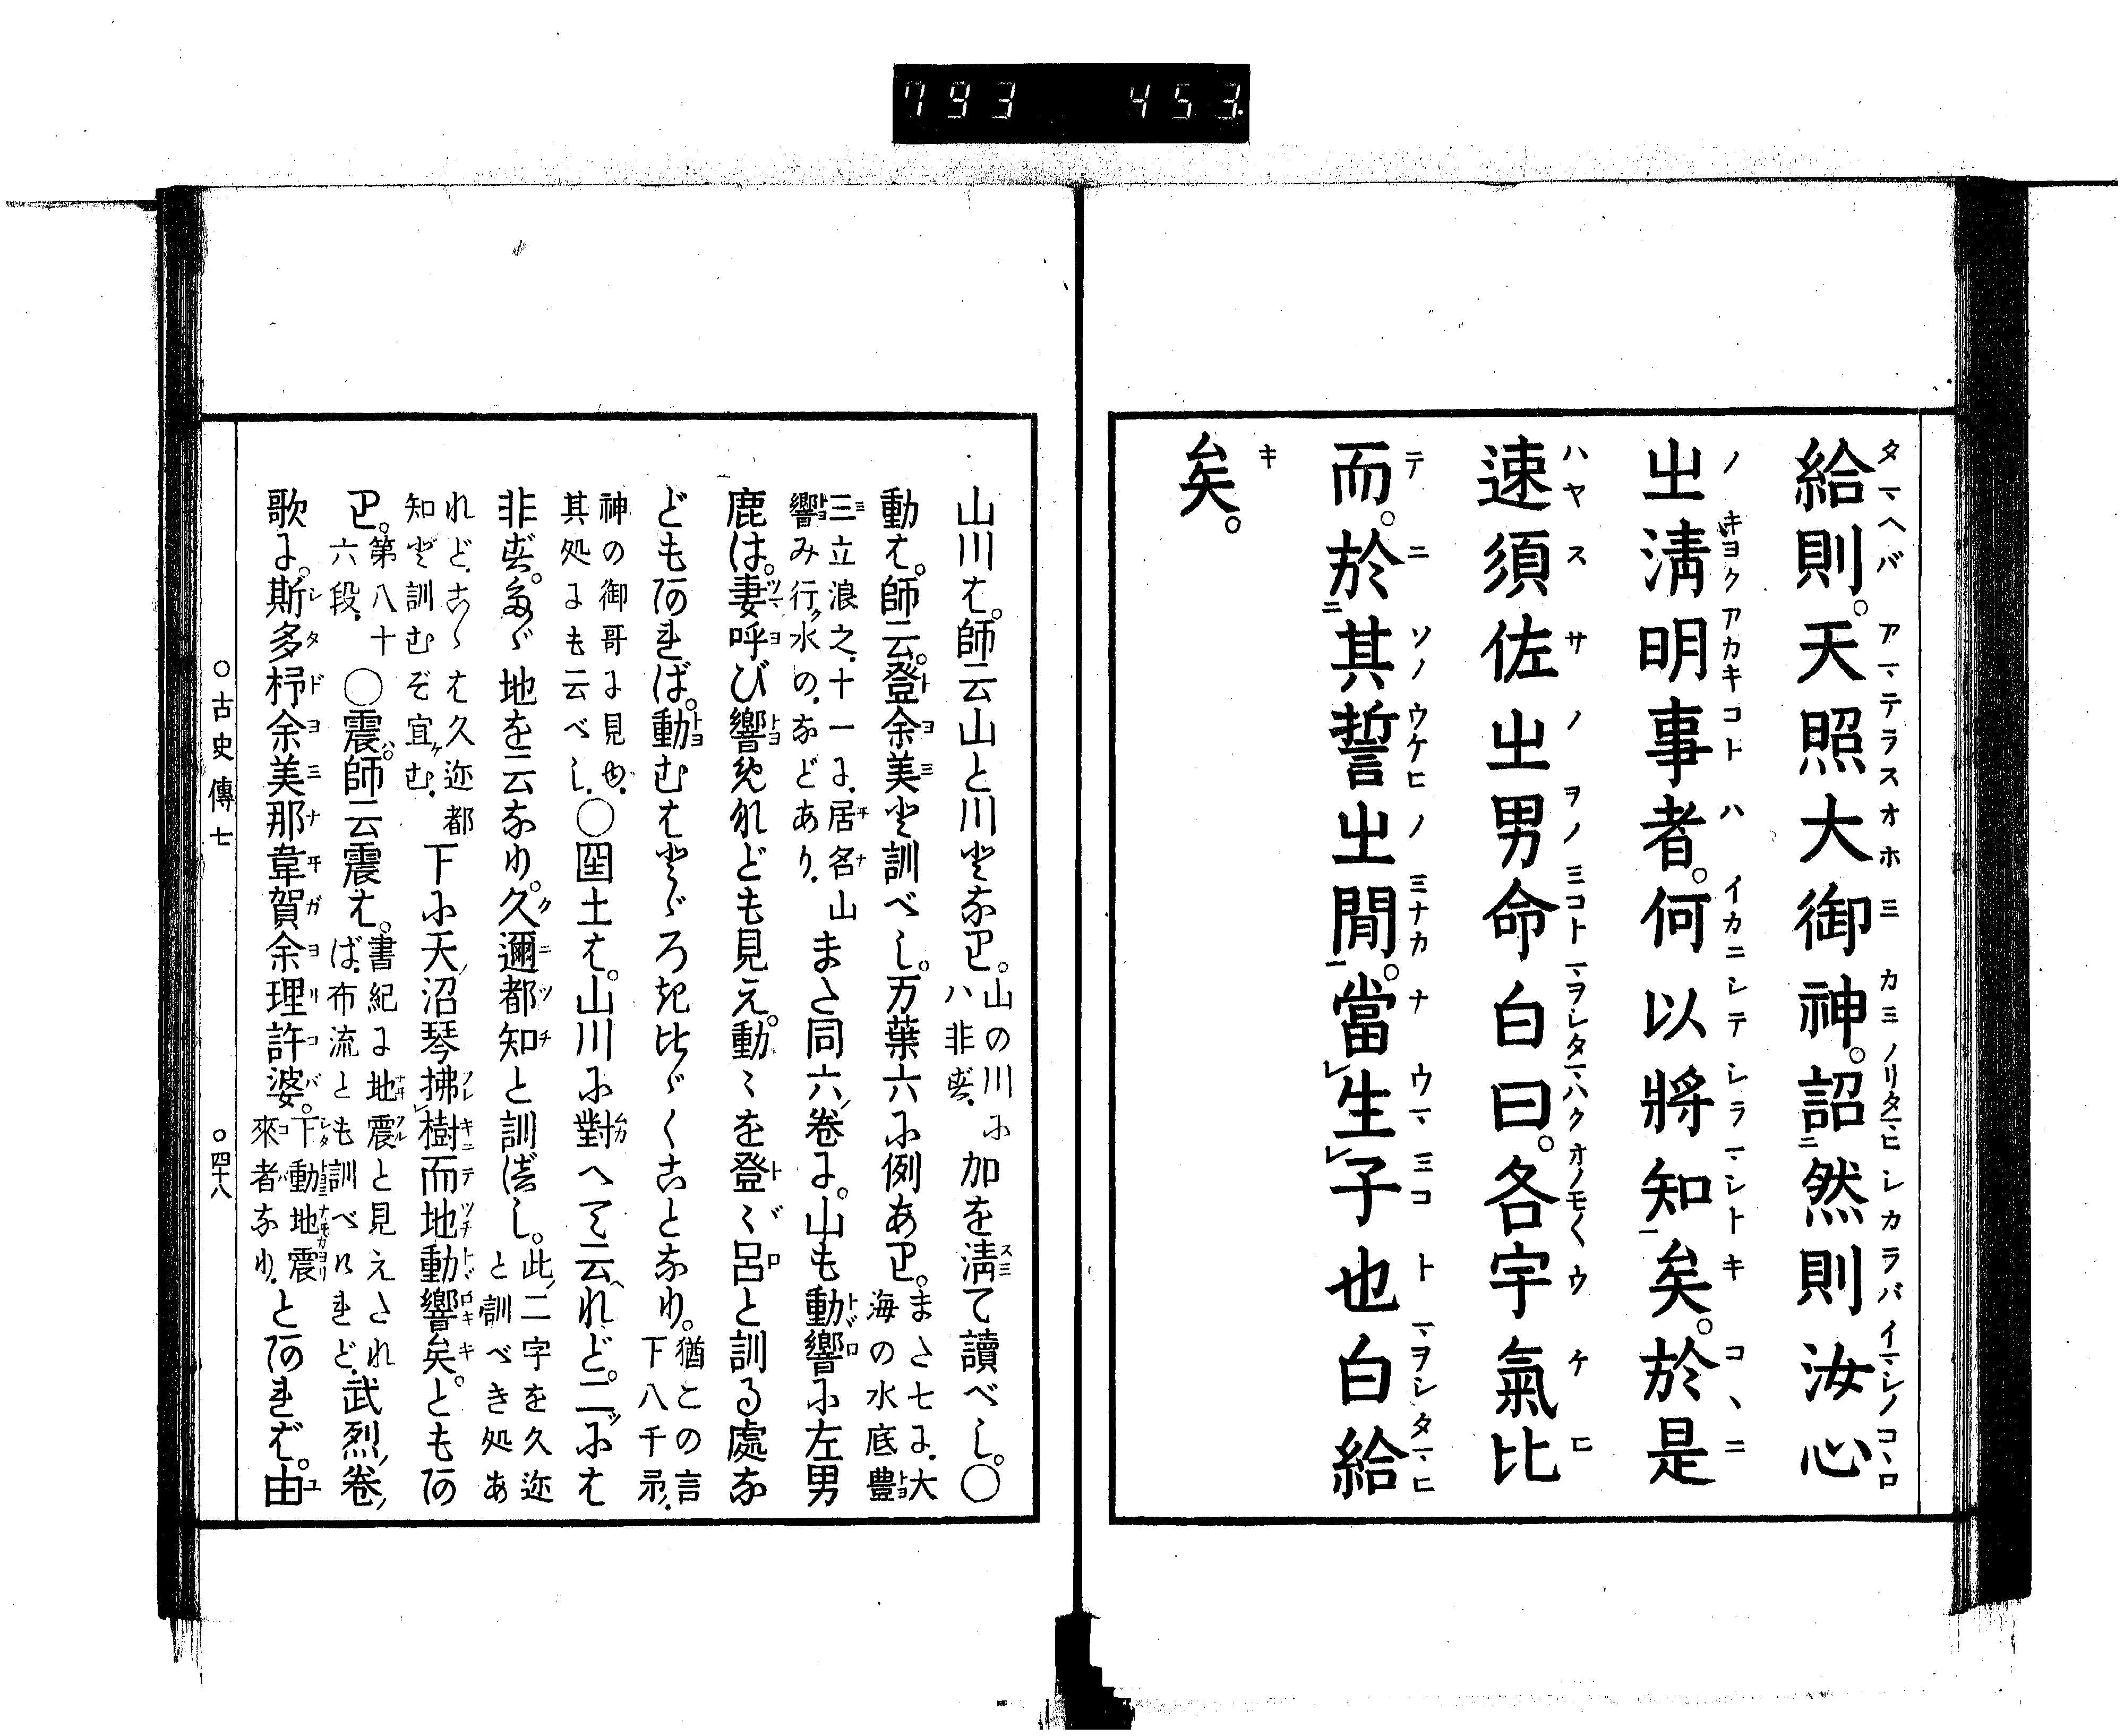 793 453
給則。天照大御神。詔然則汝心
之淸明事者。何以將知矣。於是
速須佐之男命白曰。各宇氣比
而。於其誓之閒。當生生子也白給
矣。
山川は。師云山と川となり。山の川にハ非ず。加を淸て讀べし。○
動は。師云。登余美と訓べし。万葉六に例あり。また七に。大海の水底豊
三立浪之。十一に。居名山響み行水の。などあり。また同六ノ卷に。山も動響に左男
鹿は。妻呼び響めれども見え。動〻を登〻呂と訓る處な
どもあれば。動むはとゞろき比ゞくことなり。猶この言下八千矛ノ
神の御哥に見ゆ。其処にも云べし。○国土は。山川に對へて云れど。二ツには
非ず。たゞ地を云なり。久邇都知と訓べし。此ノ二字を久迩と訓べき処あ
れど。こゝは久迩都知と訓むぞ宜けむ。下に天ノ沼琴拂樹而地動響矣。ともあ
り。第八十六段。○震ハ。師云震は。書紀に地震と見えたれば。布流とも訓べけれど。武烈ノ卷ノ
歌に。斯多杼余美那韋賀余理許婆。下動地震來者なり。とあれば。由
○古史傳七 ○四十八